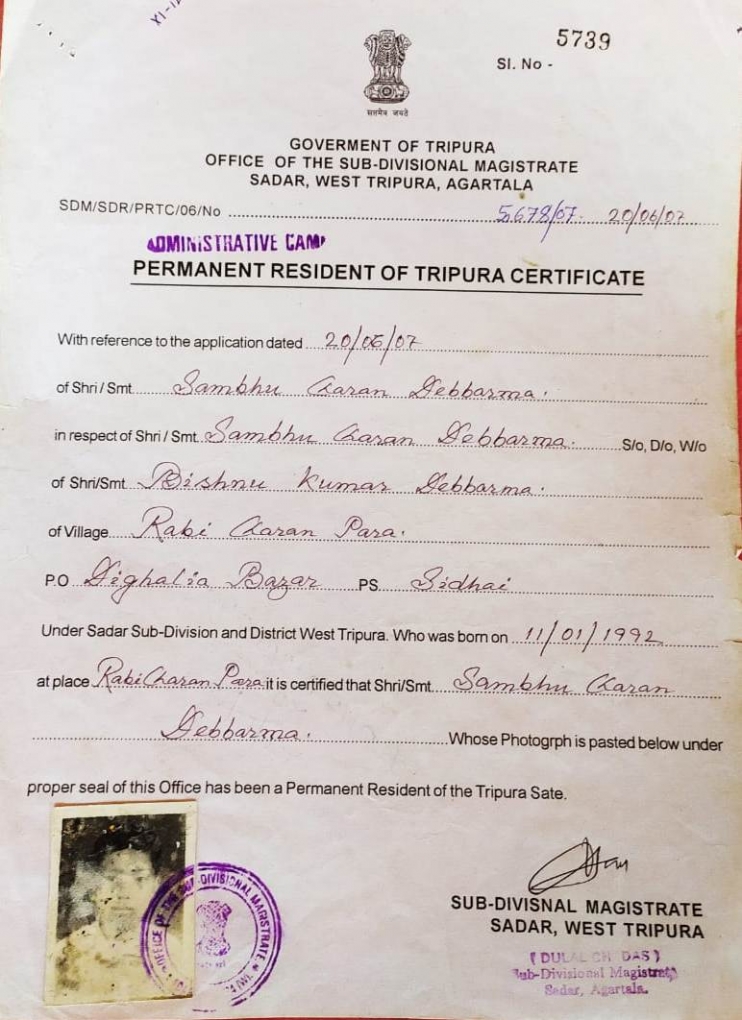 5739
Sl. No -
सत्यमेव जयते
GOVERMENT OF TRIPURA
OFFICE OF THE SUB-DIVISIONAL MAGISTRATE
SADAR, WEST TRIPURA, AGARTALA
SDM/SDR/PRTC/06/No 5678/07. 20/06/07
ADMINISTRATIVE CAMP
PERMANENT RESIDENT OF TRIPURA CERTIFICATE
With reference to the application dated 20/06/07
of Shri / Smt Sambhu Charan Debbarma.
in respect of Shri / Smt. Sambhu Charan Debbarma. S/o, D/o, W/o
of Shri/Smt. Bishnu Kumar Debbarma.
of Village Rabi Charan Para.
P.O Dighalia Bazar PS Sidhai
Under Sadar Sub-Division and District West Tripura. Who was born on 11/01/1992
at place Rabi Charan Para it is certified that Shri/Smt. Sambhu Charan
Debbarma. Whose Photogrph is pasted below under
proper seal of this Office has been a Permanent Resident of the Tripura Sate.
OFFICE OF THE SUB-DIVISIONAL MAGISTRATE
SUB-DIVISNAL MAGISTRATE
SADAR, WEST TRIPURA
( DULAL CH DAS )
Sub-Divisional Magistrate
Sadar, Agartala.